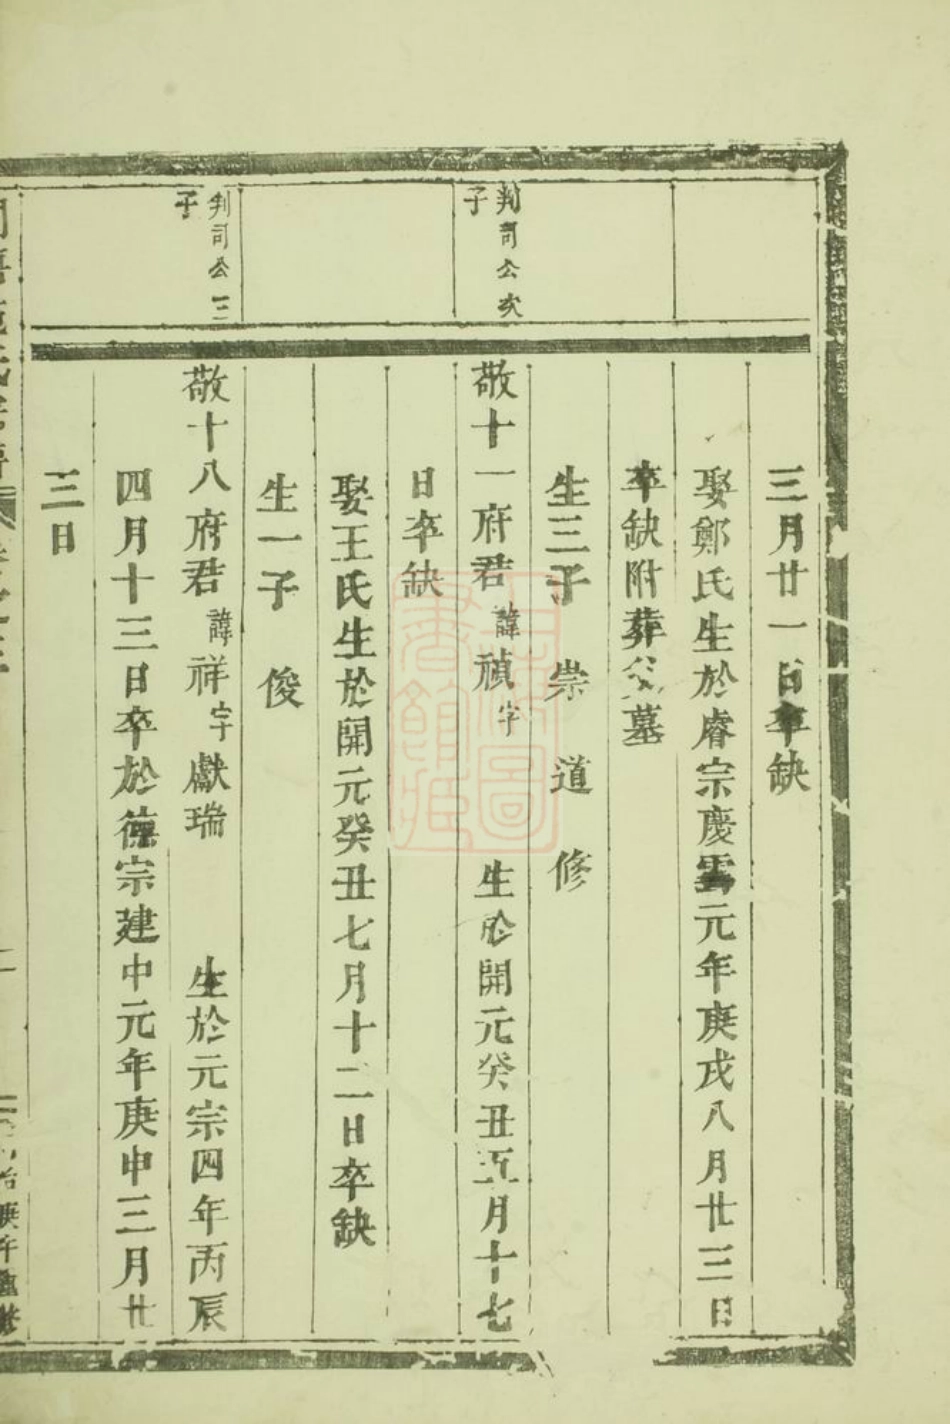 三月廿一日卒缺
娶鄭氏生於睿宗慶雲元年庚戌八月廿三日
卒缺附葬父墓
生三子 崇 道 修
判司公次
子
敬十一府君諱禎字 生於開元癸丑五月十七
日卒缺
娶王氏生於開元癸丑七月十二日卒缺
生一子 俊
判司公三
子
敬十八府君諱祥字獻瑞 生於元宗四年丙辰
四月十三日卒於德宗建中元年庚申三月廿
三日